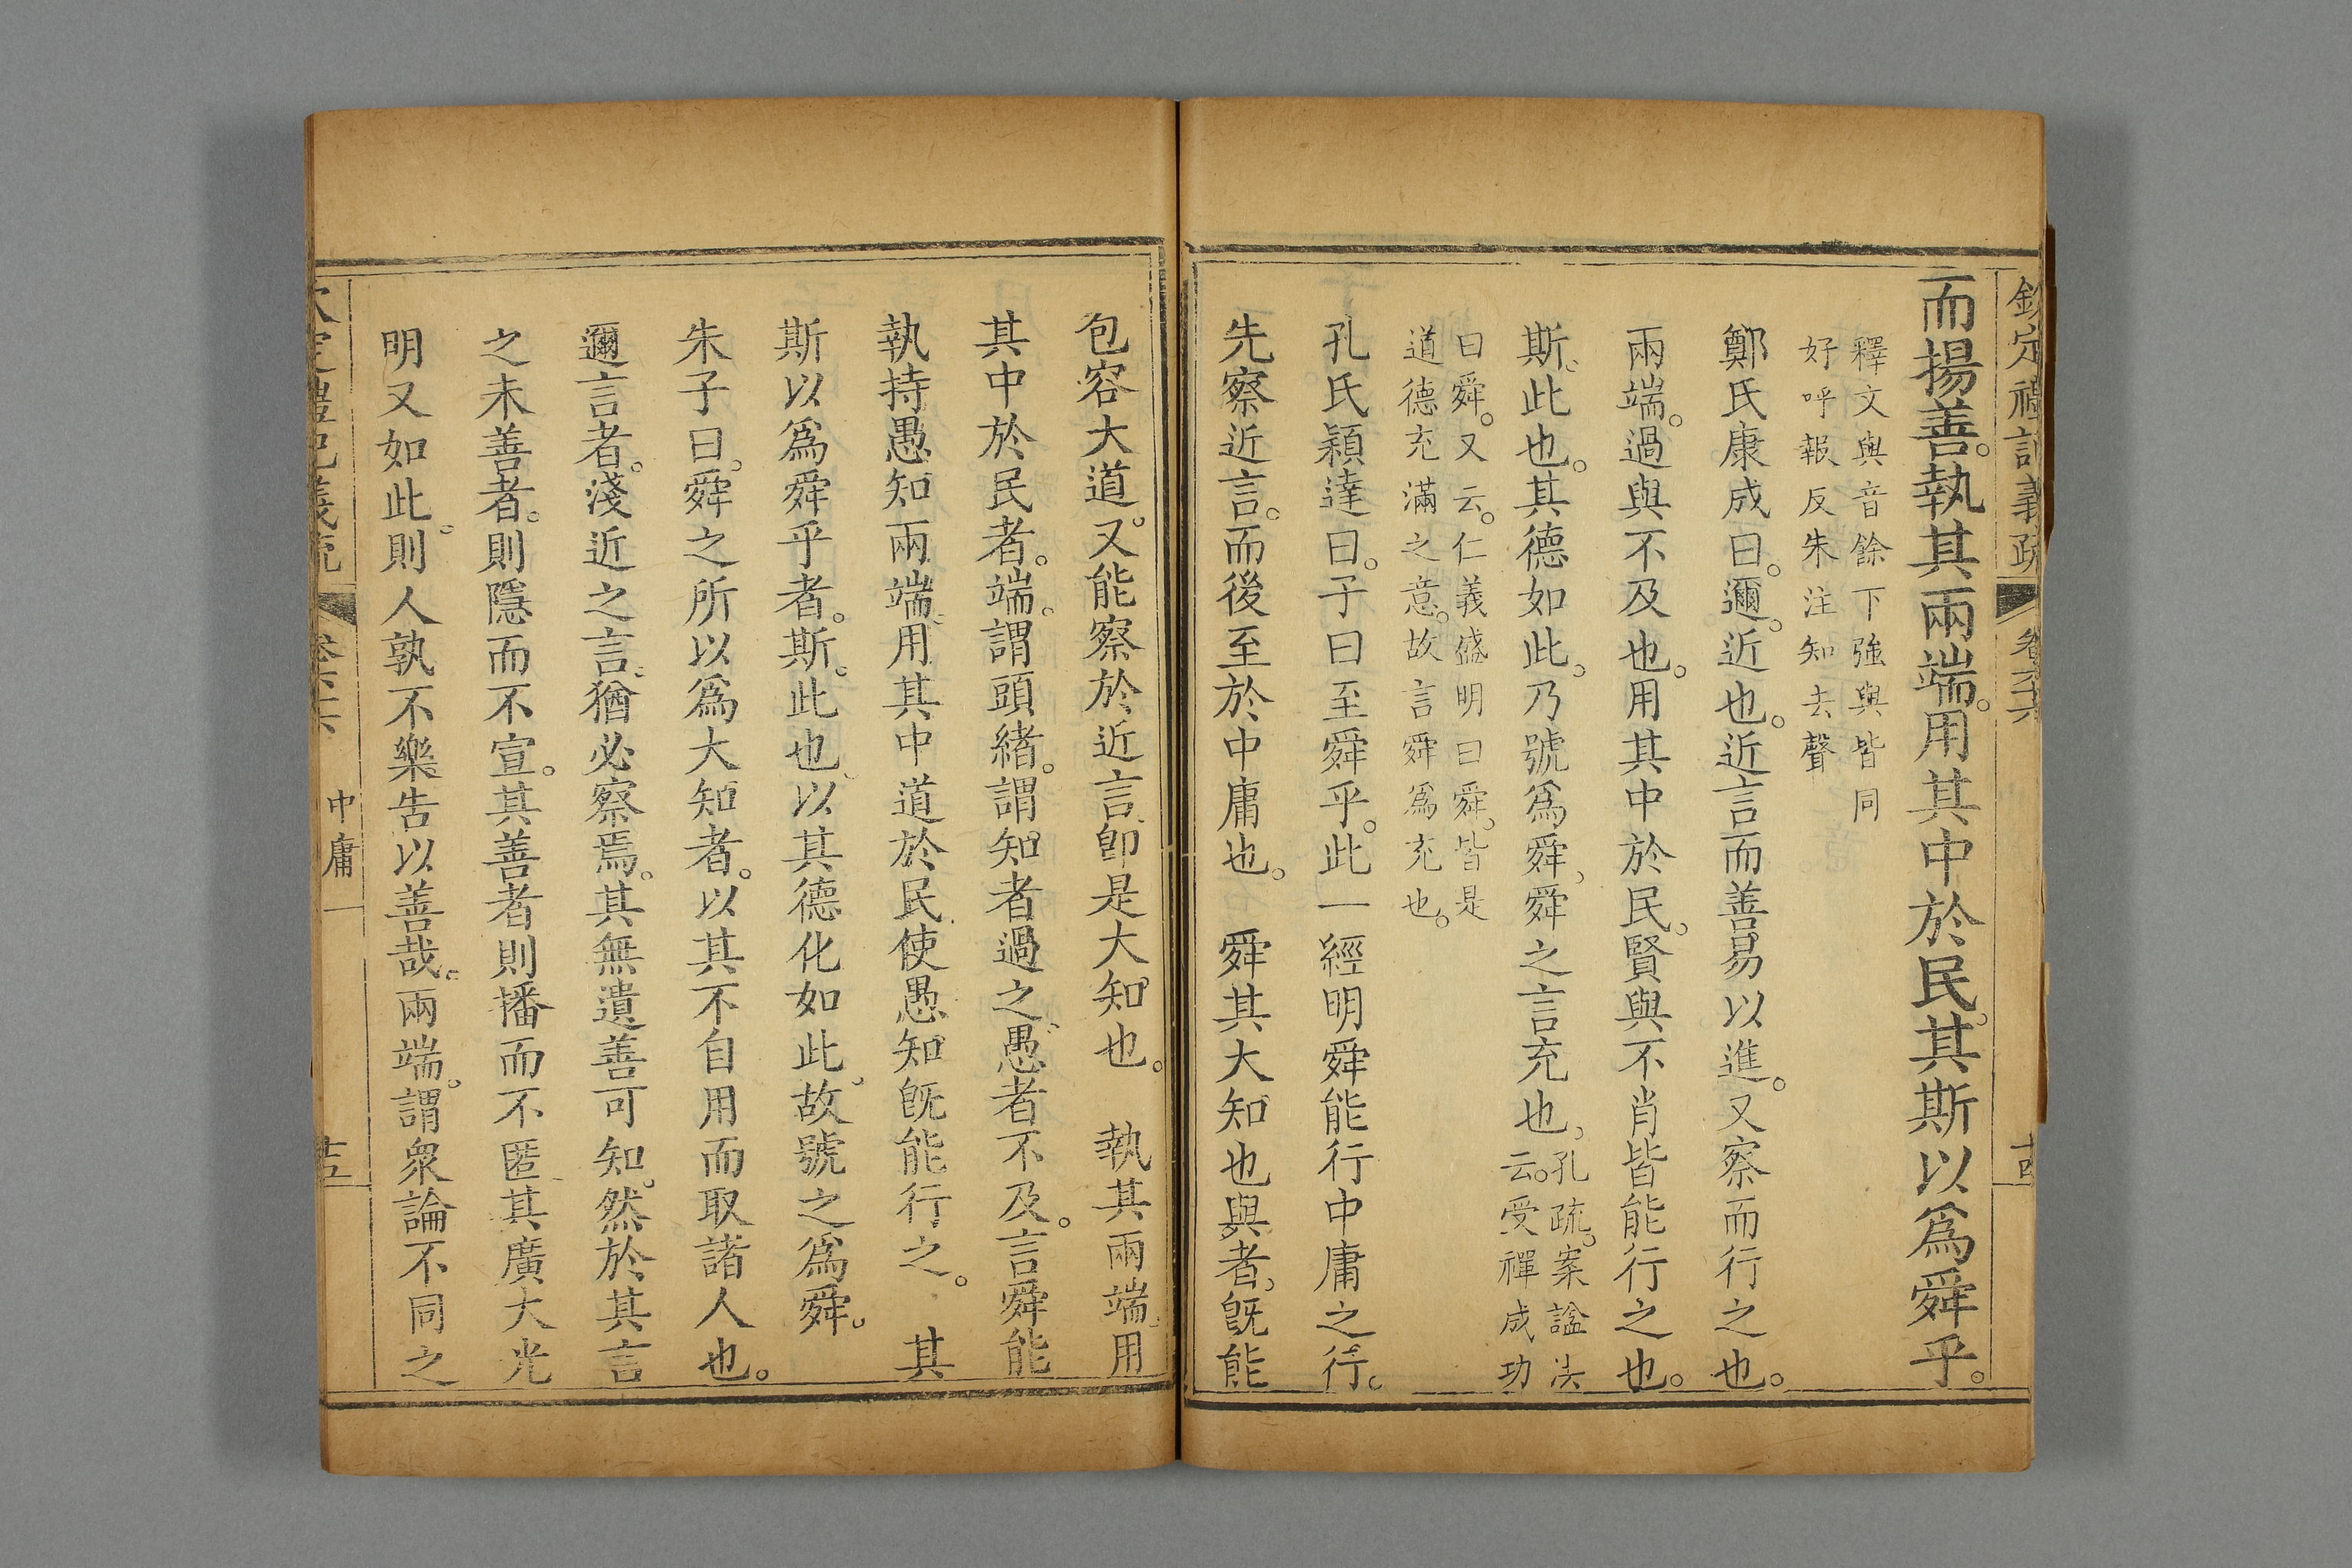 欽定禮記義疏 卷六十六 十四
而揚善。執其兩端。用其中於民。其斯以爲舜乎。
釋文與音餘下強與皆同
好呼報反朱注知去聲
鄭氏康成曰。邇。近也。近言而善易以進。又察而行之也。
兩端。過與不及也。用其中於民。賢與不肖皆能行之也。
斯。此也。其德如此。乃號爲舜。舜之言充也。
孔疏。案諡法
云。受禪成功
曰舜。又云。仁義盛明曰舜。皆是
道德充滿之意。故言舜爲充也。
孔氏穎達曰。子曰至舜乎。此一經明舜能行中庸之行。
先察近言。而後至於中庸也。 舜其大知也與者。旣能
包容大道。又能察於近言。卽是大知也。 執其兩端。用
其中於民者。端。謂頭緖。謂知者過之。愚者不及。言舜能
執持愚知兩端。用其中道於民。使愚知旣能行之。 其
斯以爲舜乎者。斯。此也。以其德化如此。故號之爲舜。
朱子曰。舜之所以爲大知者。以其不自用而取諸人也。
邇言者。淺近之言。猶必察焉。其無遺善可知。然於其言
之未善者。則隱而不宣。其善者則播而不匿。其廣大光
明又如此。則人孰不樂告以善哉。兩端。謂衆論不同之
欽定禮記義疏 卷六十六 中庸一 十五